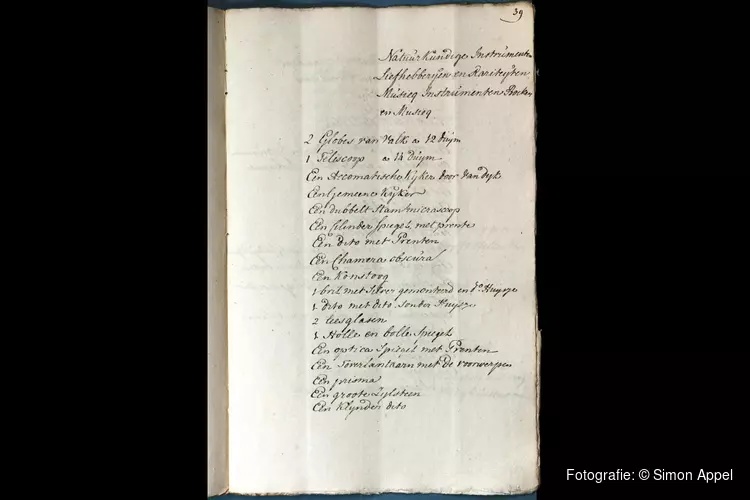 39
Natuurkundige Instrumenten
Liefhebberijen en Rariteijten
Musicq Instrumenten Boeken
en Musicq
2 Globes van Valk a 12 duijm
1 Telescoop a 14 duijm
Een Accomatische kijker door van dijk
Een Gemeene kijker
Een dubbelt Stamtmicrascoop
Een Cilinder Spiegel met prente
Een dito met Prenten
Een Chamera obscura
Een Konstoog
1 bril met Silver gemonteerd en do Huysze
1 dito met dito sonder Huysze
2 leesglasen
1 Holle en bolle Spiegel
Een optica Spiegel met Prenten
Een Toverlantaarn met de voorwerpen
Een prisma
Een groote Zylsteen
Een klynden dito
Fotografie: © Simon Appel